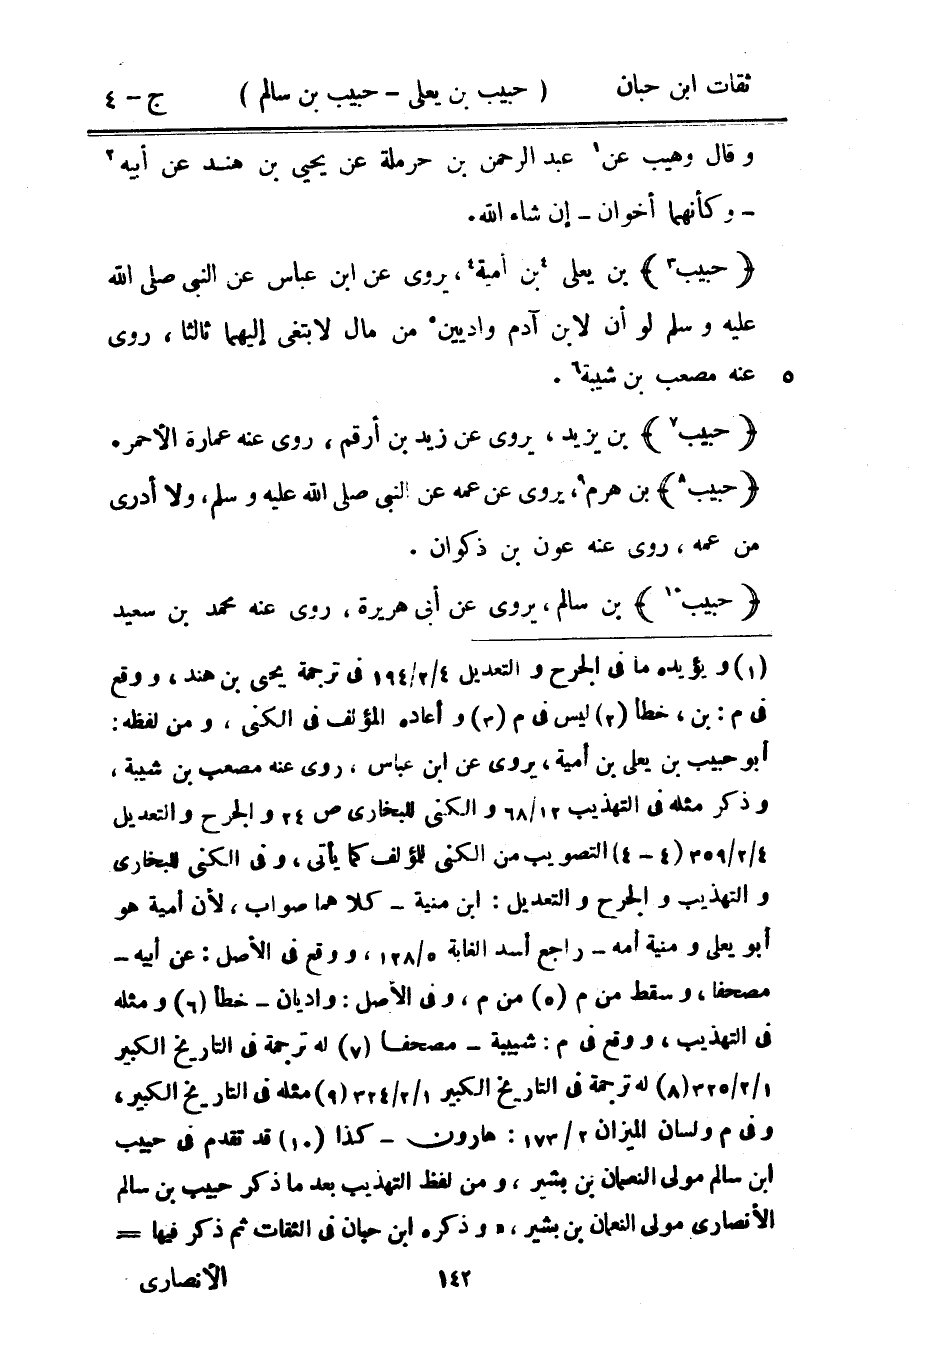 ثقات ابن حبان ( حبيب بن يعلى – حبيب بن سالم ) ج – ٤
و قال وهيب عن١ عبد الرحمن بن حرملة عن يحيى بن هند عن أبيه٢
– و كأنهما أخوان – إن شاء الله.
﴿ حبيب٣ ﴾ بن يعلى ٤بن أمية٤ ، يروى عن ابن عباس عن النبى صلى الله
عليه و سلم لو أن لابن آدم واديين٥ من مال لابتغى إليهما ثالثا ، روى
٥ عنه مصعب بن شيبة٦ .
﴿ حبيب٧ ﴾ بن يزيد ، يروى عن زيد بن أرقم ، روى عنه عمارة الأحمر .
﴿ حبيب٨ ﴾ بن هرم٩ ، يروى عن عمه عن النبى صلى الله عليه و سلم ، ولا أدرى
من عمه ، روى عنه عون بن ذكوان .
﴿ حبيب١٠ ﴾ بن سالم ، يروى عن أبى هريرة ، روى عنه محمد بن سعيد
(١) و يؤيده ما فى الجرح و التعديل ١٩٤/٢/٤ فى ترجمة يحيى بن هند ، و وقع
فى م : بن ، خطأ (٢) ليس فى م (٣) و أعاده المؤلف فى الكنى ، و من لفظه :
أبو حبيب بن يعلى بن أمية ، يروى عن ابن عباس ، روى عنه مصعب بن شيبة ،
و ذكر مثله فى التهذيب ٦٨/١٢ و الكنى للبخارى ص ٢٤ و الجرح و التعديل
٣٥٩/٢/٤ (٤ – ٤) التصويب من الكنى للمؤلف كما يأتى ، و فى الكنى للبخارى
و التهذيب و الجرح و التعديل : ابن منية – كلا هما صواب ، لأن أمية هو
أبو يعلى و منية أمه – راجع أسد الغابة ١٢٨/٥ ، و وقع فى الأصل : عن أبيه –
مصحفا ، و سقط من م (٥) من م ، و فى الأصل : واديان – خطأ (٦) و مثله
فى التهذيب ، و وقع فى م : شبيبة – مصحفا (٧) له ترجمة فى التاريخ الكبير
٣٢٥/٢/١ (٨) له ترجمة فى التاريخ الكبير ٣٢٤/٢/١ (٩) مثله فى التاريخ الكبير ،
و فى م و لسان الميزان ١٧٣/٢ : هارون – كذا (١٠) قد تقدم فى حبيب
ابن سالم مولى النعمان بن بشير ، و من لفظ التهذيب بعد ما ذكر حبيب بن سالم
الأنصارى مولى النعمان بن بشير ، « و ذكره ابن حبان فى الثقات ثم ذكر فيها =
١٤٢ الأنصارى